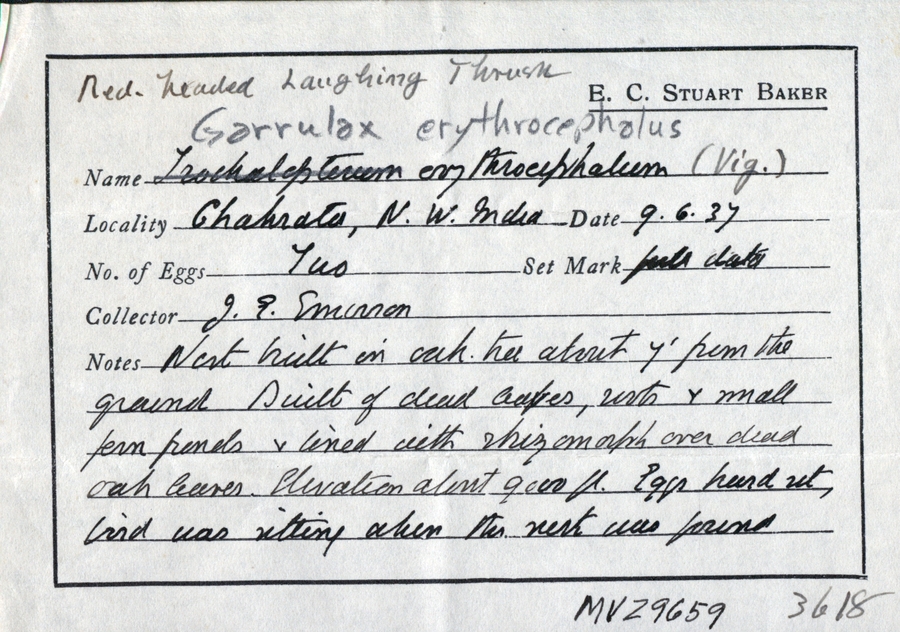 Red-headed Laughing Thrush
E. C. STUART BAKER
Garrulax erythrocephalus
Name Trochalopterum erythrocephalum (Vig.)
Locality Chakrata, N. W. India Date 9.6.37
No. of Eggs Two Set Mark date
Collector J. E. Emerson
Notes Nest built in oak tree about 7' from the
ground Built of dead leaves, roots & small
fern fronds & lined with rhizomorph over dead
oak leaves. Elevation about 9000 ft. Eggs hard set,
bird was sitting when this nest was found
MVZ9659 3618